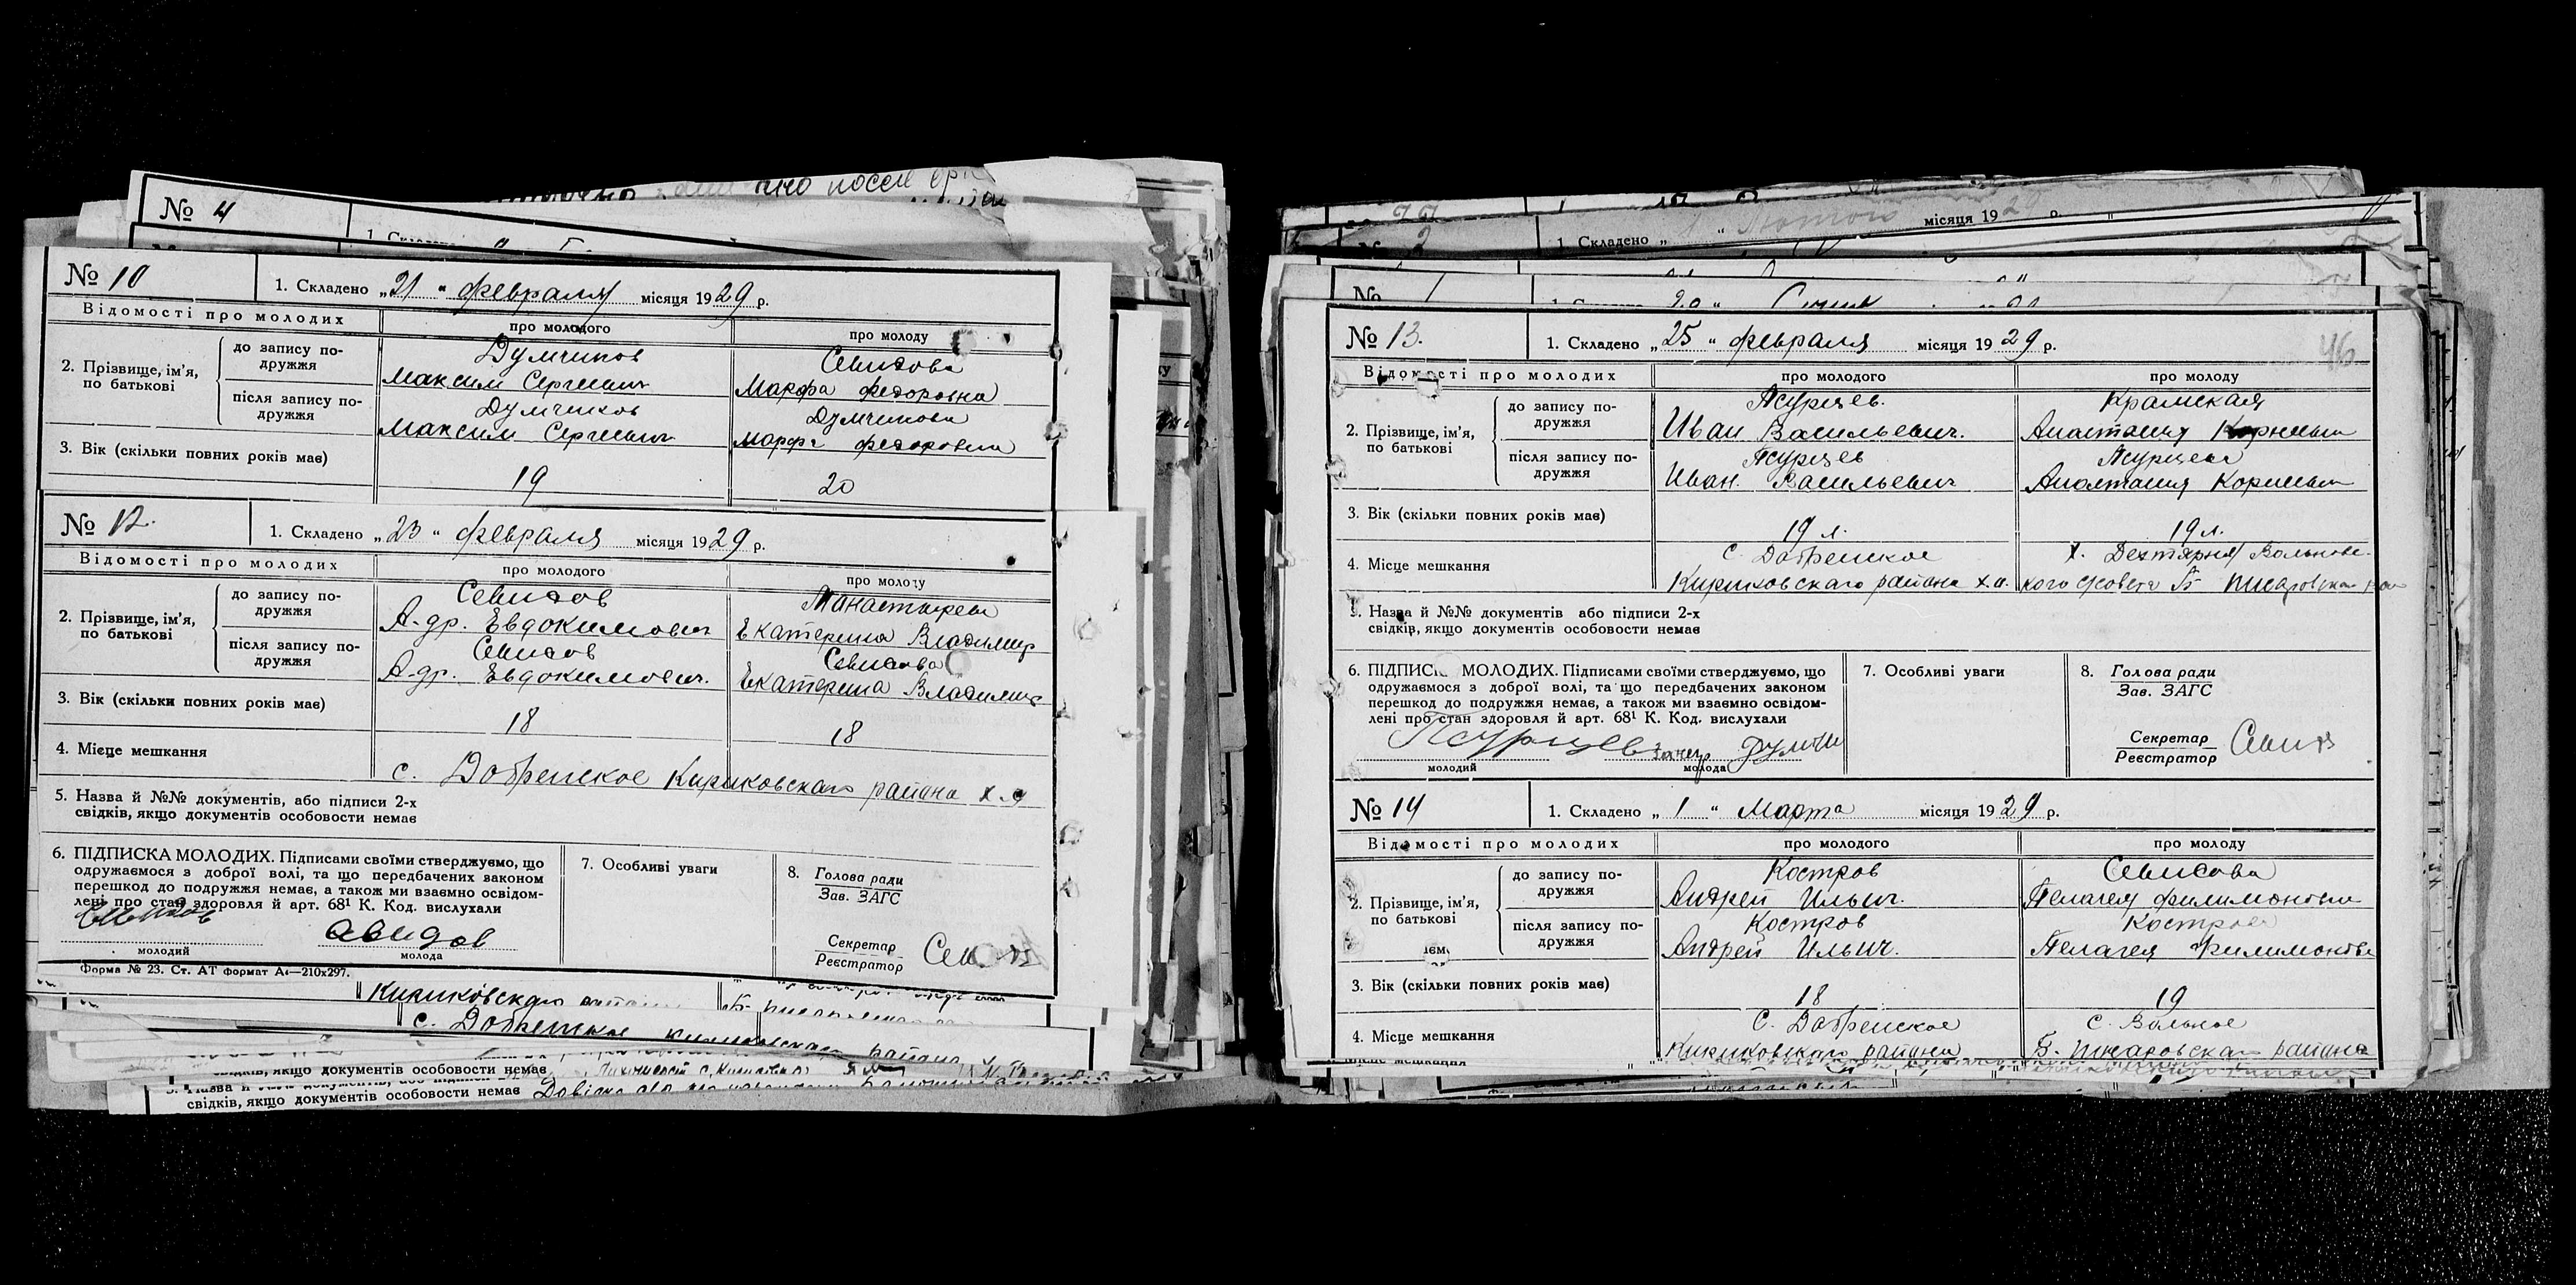 № 4
№ 10
1. Складено „21“ февраля місяця 1929 р.
Відомості про молодих
про молодого
про молоду
2. Прізвище, ім'я, по батькові
до запису по-
дружжя
Думчиков
Максим Сергеевич
Севидова
Марфа Федоровна
після запису по-
дружжя
Думчиков
Максим Сергеевич
Думчикова
Марфа Федоровна
3. Вік (скільки повних років має)
19
20
№ 12.
1. Складено „23“ февраля місяця 1929 р.
Відомості про молодих
про молодого
про молоду
2. Прізвище, ім'я,
по батькові
до запису по-
дружжя
Севидов
А-др. Евдокимович
Манастырева
Екатерина Владимир
після запису по-
дружжя
Севидов
А-др. Евдокимович.
Севидова
Екатерина Владимир
3. Вік (скільки повних років має)
18
18
4. Місце мешкання
с. Добренское Кириковскаго района х.о
5. Назва й №№ документів, або підписи 2-х
свідків, якщо документів особовости немає
6. ПІДПИСКА МОЛОДИХ. Підписами своїми стверджуємо, що
одружаємося з доброї волі, та що передбачених законом
перешкод до подружжя немає, а також ми взаємно освідом-
лені про стан здоровля й арт. 68¹ К. Код. вислухали
молодий
молода
7. Особливі уваги
8. Голова ради
Зав. ЗАГС
Секретар
Реєстратор
Форма № 23. Ст. АТ формат А4—210х297.
Кириковскаго
с. Добренское Кириковскаго района
свідків, якщо документів особовости немає
свідків, якщо документів особовости немає
місяця 1929 р.
№ 2
1. Складено
№ 1
№ 13.
1. Складено „25“ февраля місяця 1929 р.
46
Відомості про молодих
про молодого
про молоду
2. Прізвище, ім'я,
по батькові
до запису по-
дружжя
Псурцев.
Иван Васильевич.
Крамская
Анастасия Корнеевн
після запису по-
дружжя
Псурцев
Иван. Васильевич
Псурцева
Анастасия Корнеевн
3. Вік (скільки повних років має)
19 л.
19 л.
4. Місце мешкання
с. Добренское
Кириковскаго района х.о.
х. Дехтярня Вольнов-
кого с/совета Б Писаровскаго
5. Назва й №№ документів або підписи 2-х
свідків, якщо документів особовости немає
6. ПІДПИСКА МОЛОДИХ. Підписами своїми стверджуємо, що
одружаємося з доброї волі, та що передбачених законом
перешкод до подружжя немає, а також ми взаємно освідом-
лені про стан здоровля й арт. 68¹ К. Код. вислухали
Псурцев
молодий
молода
7. Особливі уваги
8. Голова ради
Зав. ЗАГС
Секретар
Реєстратор
№ 14
1. Складено „1“ Марта місяця 1929 р.
Відомості про молодих
про молодого
про молоду
2. Прізвище, ім'я,
по батькові
до запису по-
дружжя
Костров
Андрей Ильич.
Севидова
Пелагея Филимоновна
після запису по-
дружжя
Костров
Андрей Ильич.
Кострова
Пелагея Филимоновн
3. Вік (скільки повних років має)
18
19
4. Місце мешкання
с. Добренское
Кириковскаго района
с. Вольное
Б. Писаровскаго района